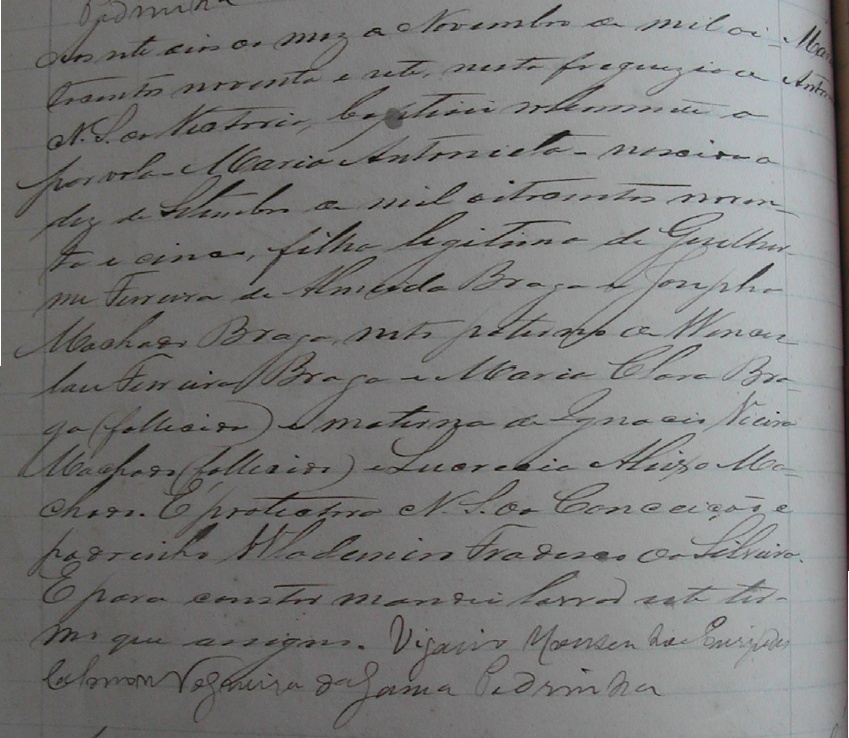 Pedrinha
Aos sete dias do mez de Novembro de mil oi-
tocentos noventa e sete, nesta freguezia de
N. S. da Victoria, baptisei solemnemente a
parvola Maria Antonieta nascida a
dez de Setembro de mil oitocentos noven-
ta e cinco, filha legitima de Guilher-
me Ferreira de Almeida Braga e Josepha
Machado Braga, neta paterna de Wences-
lau Ferreira Braga e Maria Clara Bra-
ga (fallecida) e materna de Ignacio Vieira
Machado (fallecido) e Lucrecia Aleixo Ma-
chado. É protectora N. S. da Conceição e
padrinho Wlademiro Fradesco da Silveira.
E para constar mandei lavrar este ter-
mo que assigno. Vigario Monsenhor Euripedes
Calmon Nogueira da Gama Pedrinha
Maria
Anton